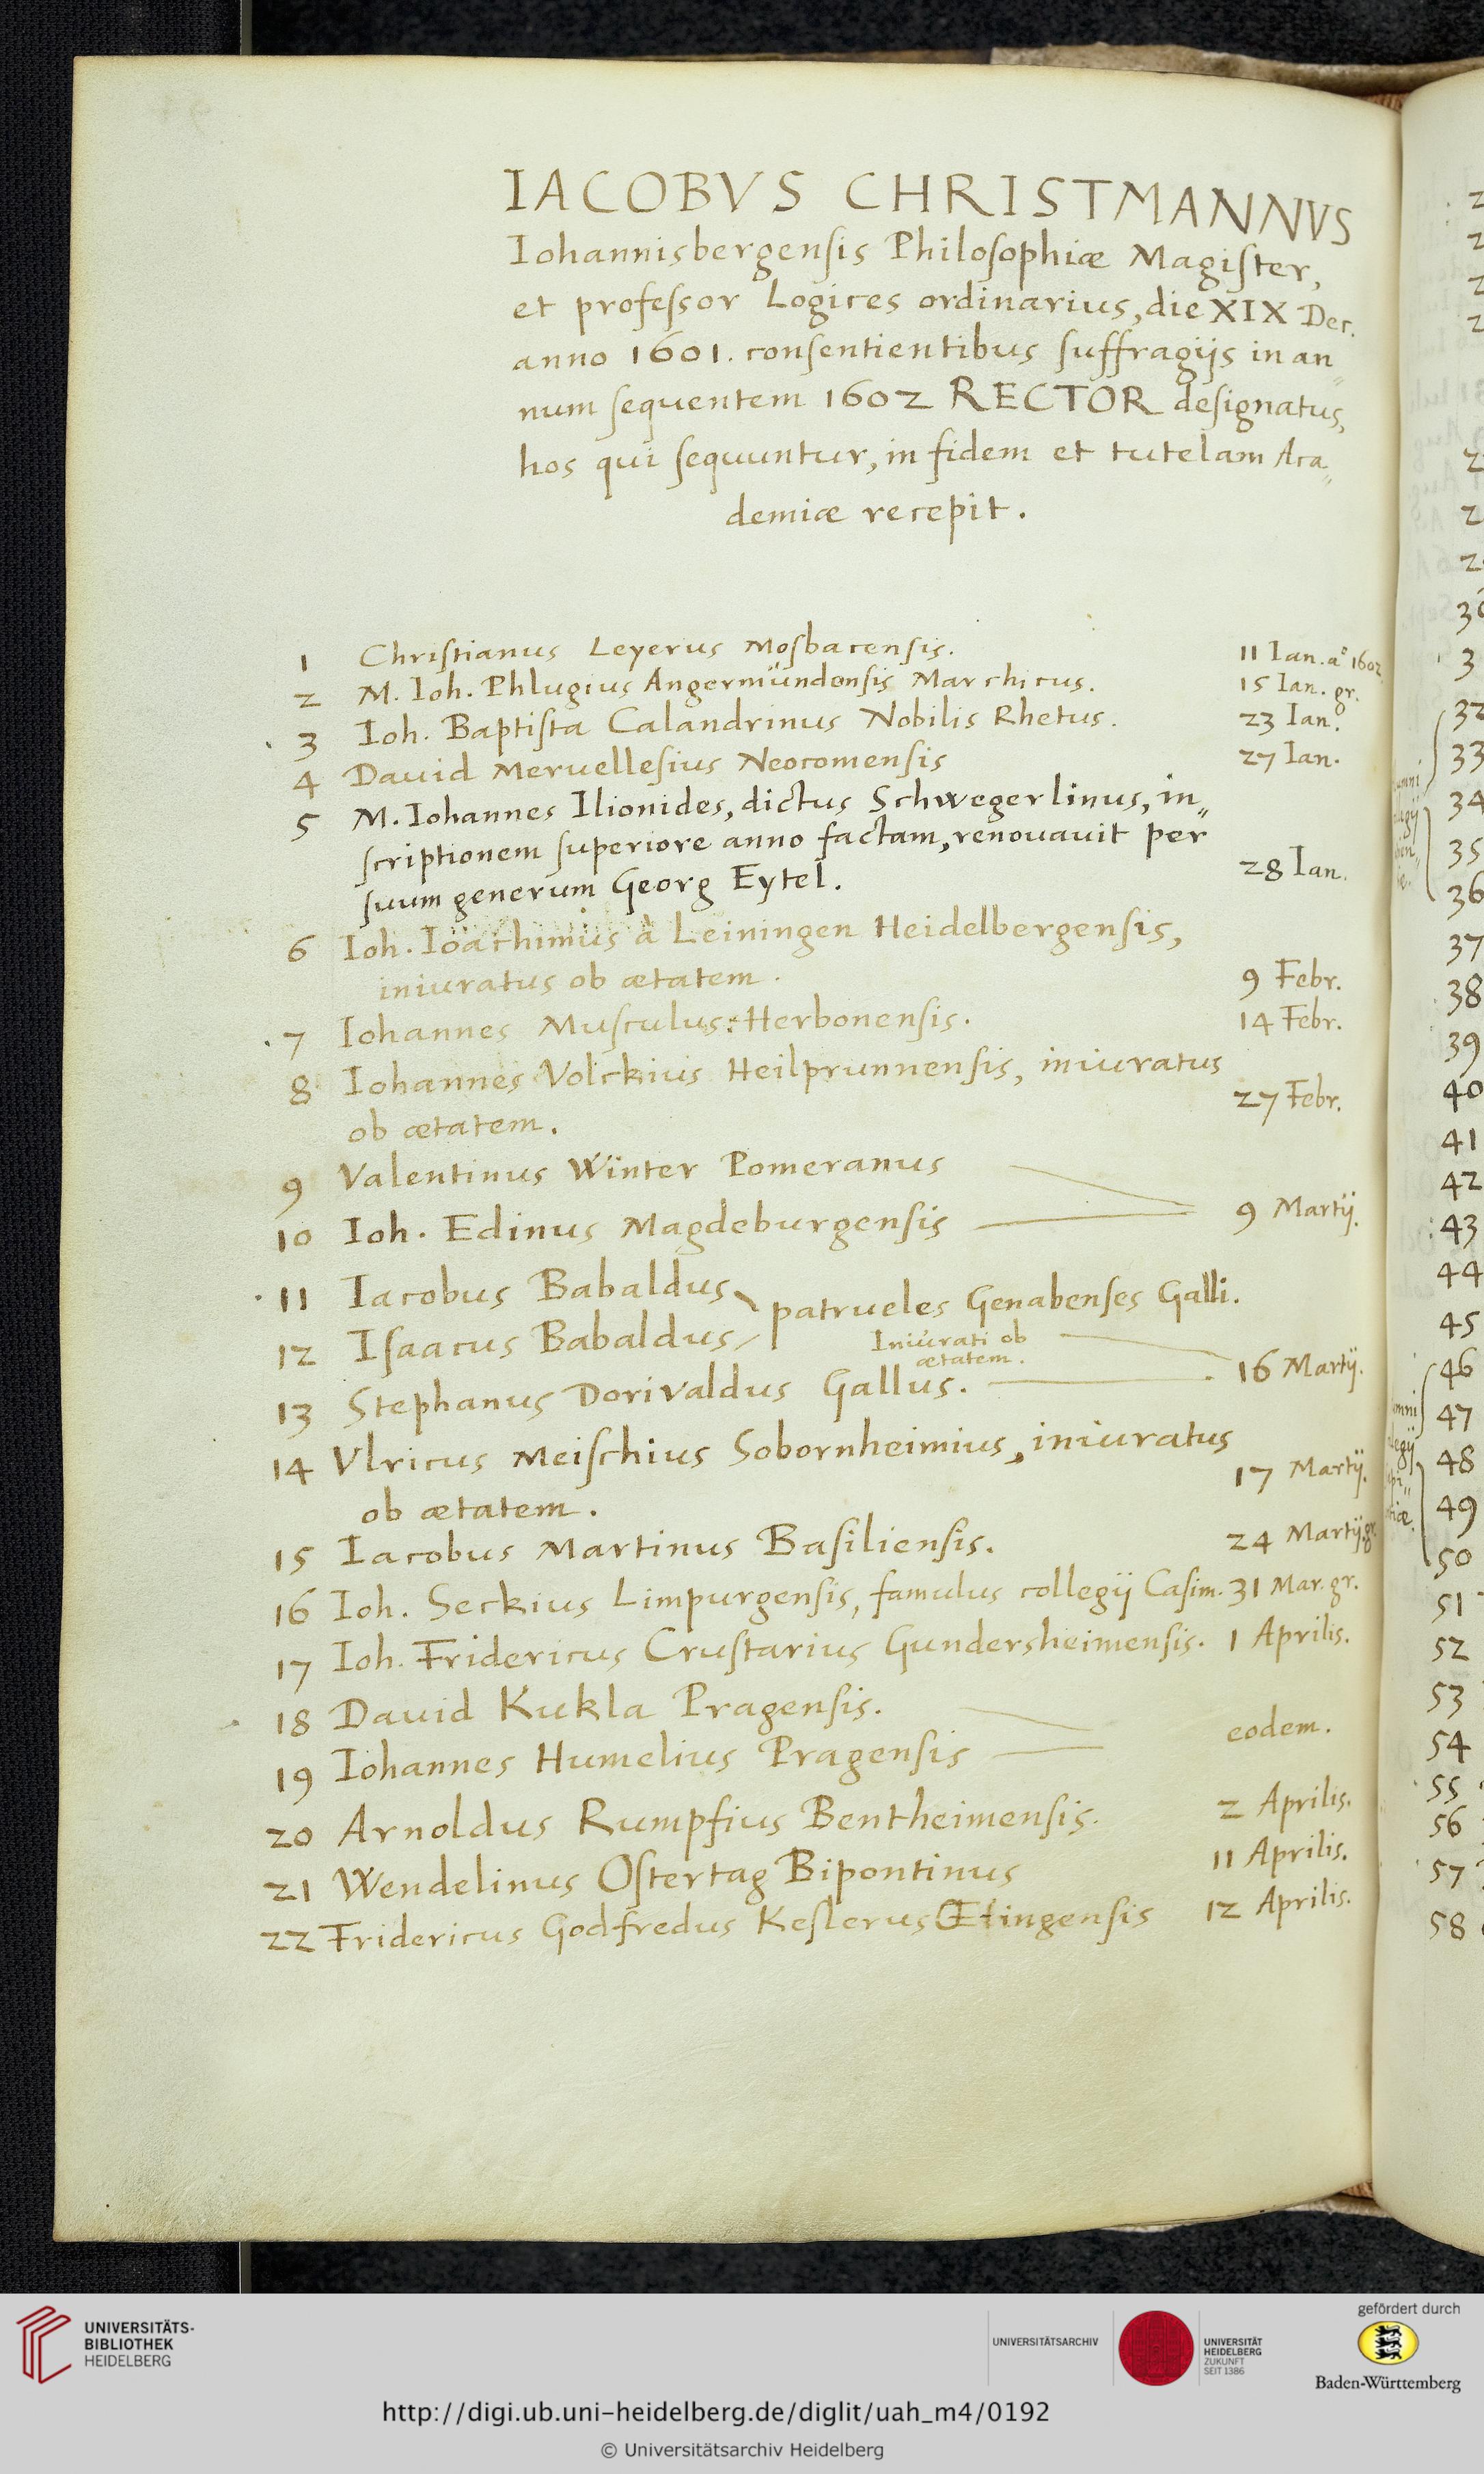 IACOBVS CHRISTMANNVS
Iohannisbergensis Philosophiæ Magister,
et professor Logices ordinarius, die XIX Dec.
anno 1601. consentientibus suffragijs in an„
num sequentem 1602 RECTOR designatus,
hos qui sequuntur, in fidem et tutelam Aca„
demiæ recepit.
1 Christianus Leyerus Mosbacensis. 11 Ian. a° 1602
2 M. Ioh. Phlugius Angermündensis Marchicus. 15 Ian. gr.
3 Ioh. Baptista Calandrinus Nobilis Rhetus. 23 Ian.
4 Dauid Meruellesius Neocomensis 27 Ian.
5 M. Iohannes Ilionides, dictus Schwegerlinus, in„
scriptionem superiore anno factam, renouauit per
suum generum Georg Eytel. 28 Ian.
6 Ioh. Ioachimus à Leiningen Heidelbergensis,
iniuratus ob ætatem. 9 Febr.
7 Iohannes Musculus Herbonensis. 14 Febr.
8 Iohannes Volckius Heilprunnensis, iniuratus
ob ætatem. 27 Febr.
9 Valentinus Winter Pomeranus
10 Ioh. Edinus Magdeburgensis 9 Martij.
11 Iacobus Babaldus
12 Isaacus Babaldus patrueles Genabenses Galli.
Iniurati ob
ætatem.
13 Stephanus Dorivaldus Gallus. 16 Martij.
14 Vlricus Meischius Sobornheimius, iniuratus
ob ætatem. 17 Martij.
15 Iacobus Martinus Basiliensis. 24 Martij. gr.
16 Ioh. Seckius Limpurgensis, famulus collegij Casim. 31 Mar. gr.
17 Ioh. Fridericus Crustarius Gundersheimensis. 1 Aprilis.
18 Dauid Kukla Pragensis.
19 Iohannes Humelius Pragensis eodem.
20 Arnoldus Rumpfius Bentheimensis. 2 Aprilis.
21 Wendelinus Ostertag Bipontinus 11 Aprilis.
22 Fridericus Godfredus Keslerus Œtingensis 12 Aprilis.
33
34
35
36
37
38
39
40
41
42
43
44
45
46
47
48
49
50
51
52
53
54
55
56
57
58
UNIVERSITÄTS-
BIBLIOTHEK
HEIDELBERG
UNIVERSITÄTSARCHIV
UNIVERSITÄT
HEIDELBERG
ZUKUNFT
SEIT 1386
gefördert durch
Baden-Württemberg
http://digi.ub.uni-heidelberg.de/diglit/uah_m4/0192
© Universitätsarchiv Heidelberg